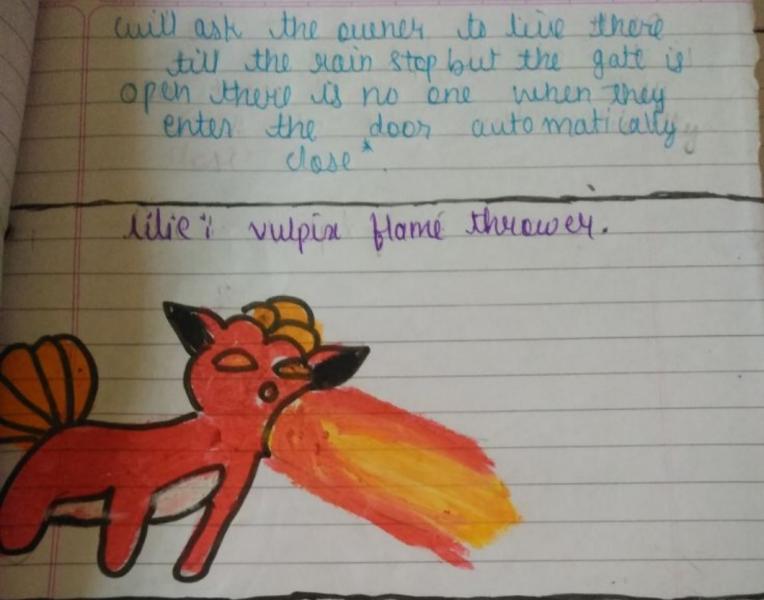 will ask the owner to live there
till the rain stop but the gate is
open there is no one when they
enter the door automatically
close*.
lilie: vulpix flame thrower.